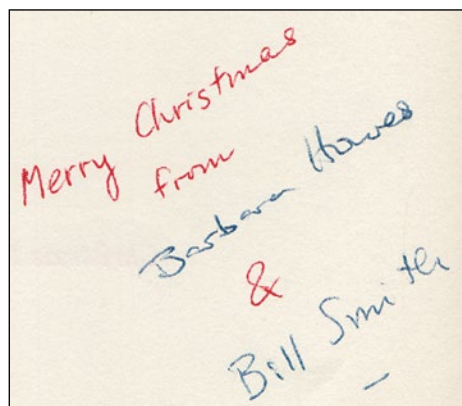 Merry Christmas
from
Barbara Howes
&
Bill Smith